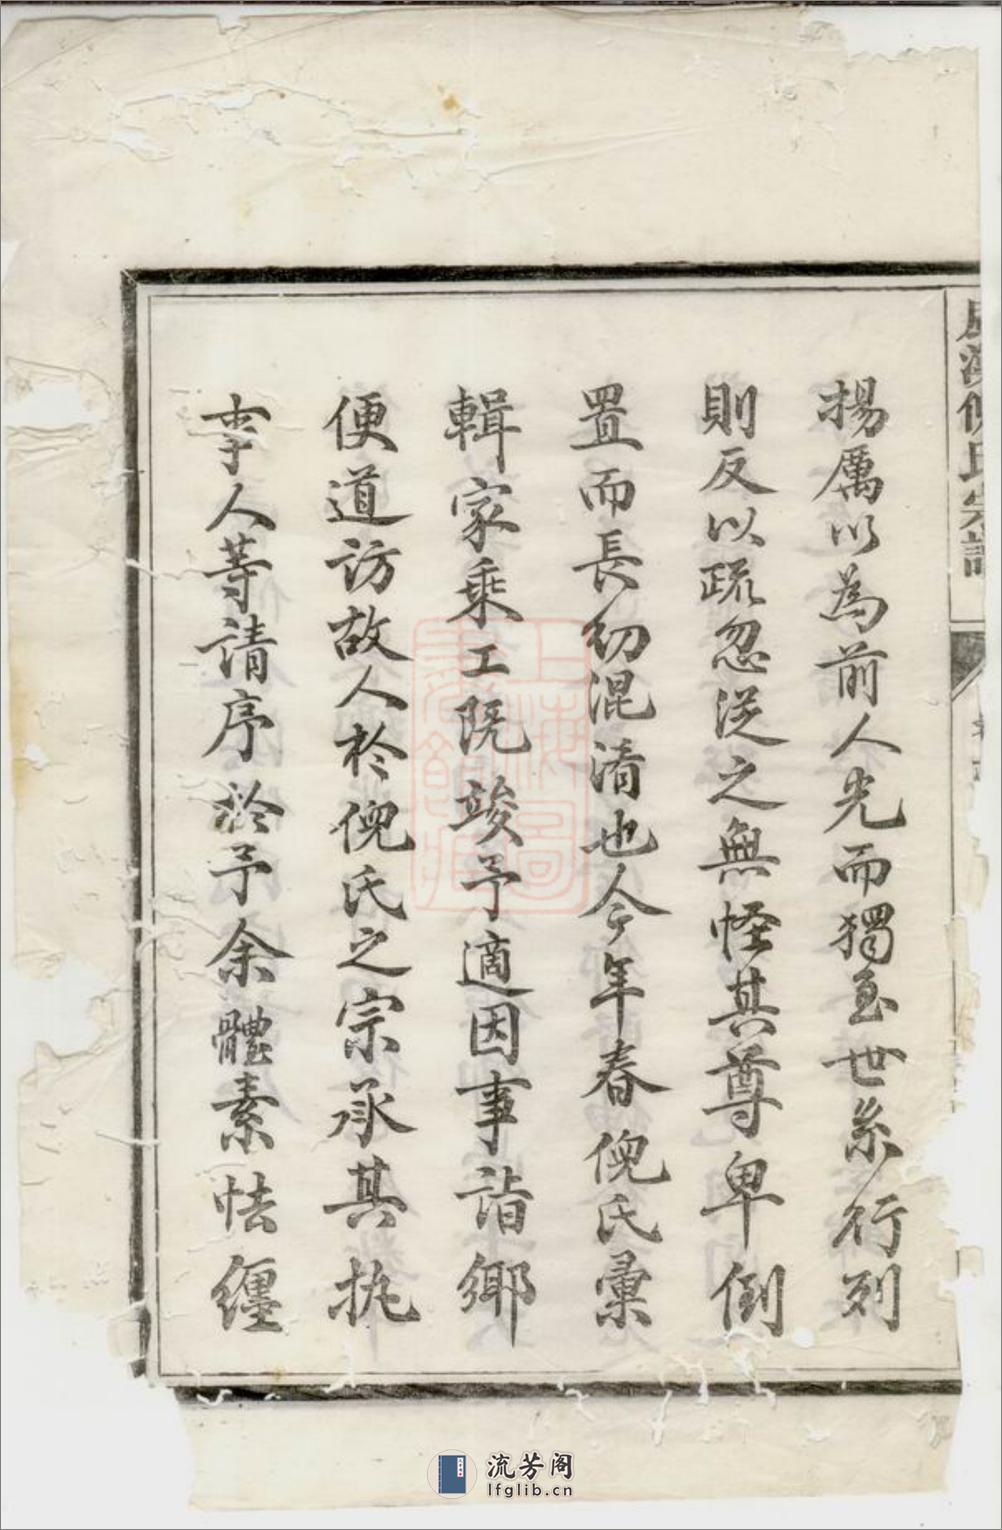 揚厲以為前人光而獨至世系行列
則反以疏忽從之無怪其尊卑倒
置而長幼混淆也今年春倪氏彙
輯家乘工既竣予適因事詣鄉
便道訪故人於倪氏之宗承其執
事人等請序於予余體素怯纏
氏宗譜
流芳阁
lfglib.cn